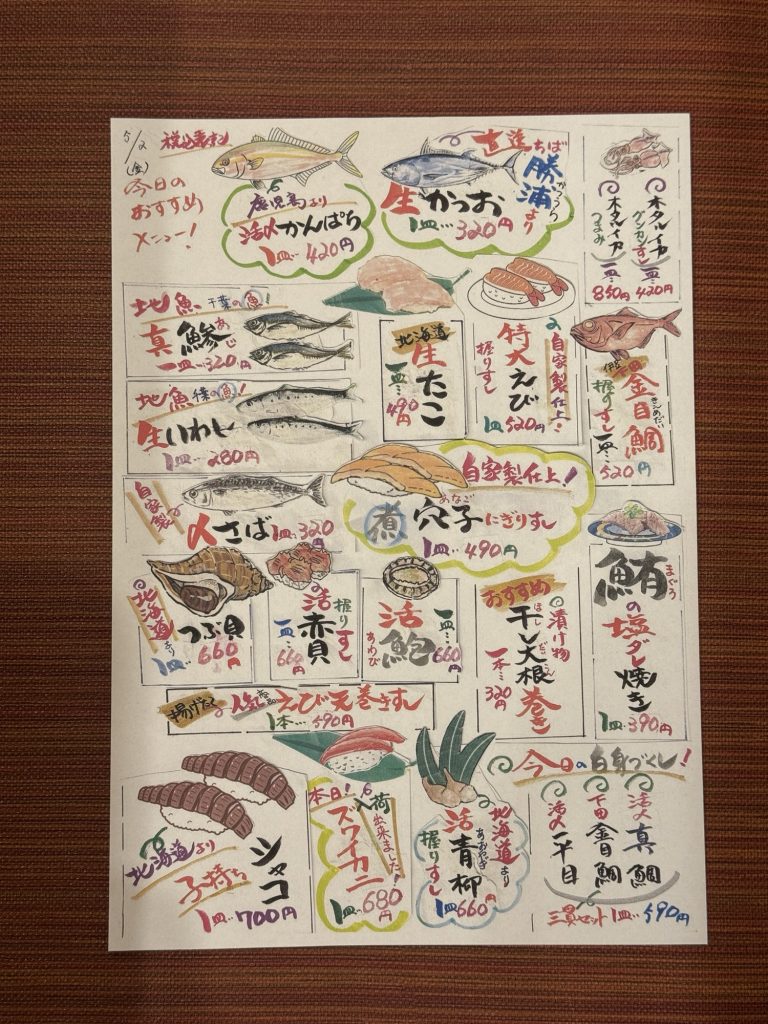 5/2
(金)
税込表示
今日の
おすすめ
メニュー!
鹿児島より
活〆かんぱち
1皿…420円
直送ちば
勝浦より
かつうら
生かつお
1皿…320円
ホタルイカ
グンカンすし
一皿…420円
ホタルイカ
つまみ
一皿…850円
地魚の千葉の魚!
真鯵
あじ
一皿…320円
北海道
生たこ
一皿…490円
自家製仕上
特大えび
握りすし
1皿520円
伊豆の
金目鯛
きんめだい
握りすし
一皿…520円
地魚
千葉の魚!
生いわし
1皿…280円
自家製
〆さば1皿…320円
自家製仕上!
あなご
煮穴子にぎりすし
1皿…490円
北海道より
つぶ貝
1皿…660円
握りすし
活赤貝
一皿…660円
活鮑
あわび
一皿…660円
おすすめ
漬け物
干し大根巻き
一本…320円
鮪の塩ダレ焼き
まぐろ
1皿…390円
揚げたて
人気
えび天巻きすし
1本…590円
北海道より
子持ち
シャコ
1皿…700円
本日!
入荷
出来ました!
ズワイカニ
1皿…680円
北海道より
活青柳
あおやぎ
握りすし
1皿660円
今日の白身づくし!
活〆真鯛
下田金目鯛
活〆平目
三貫セット1皿…590円